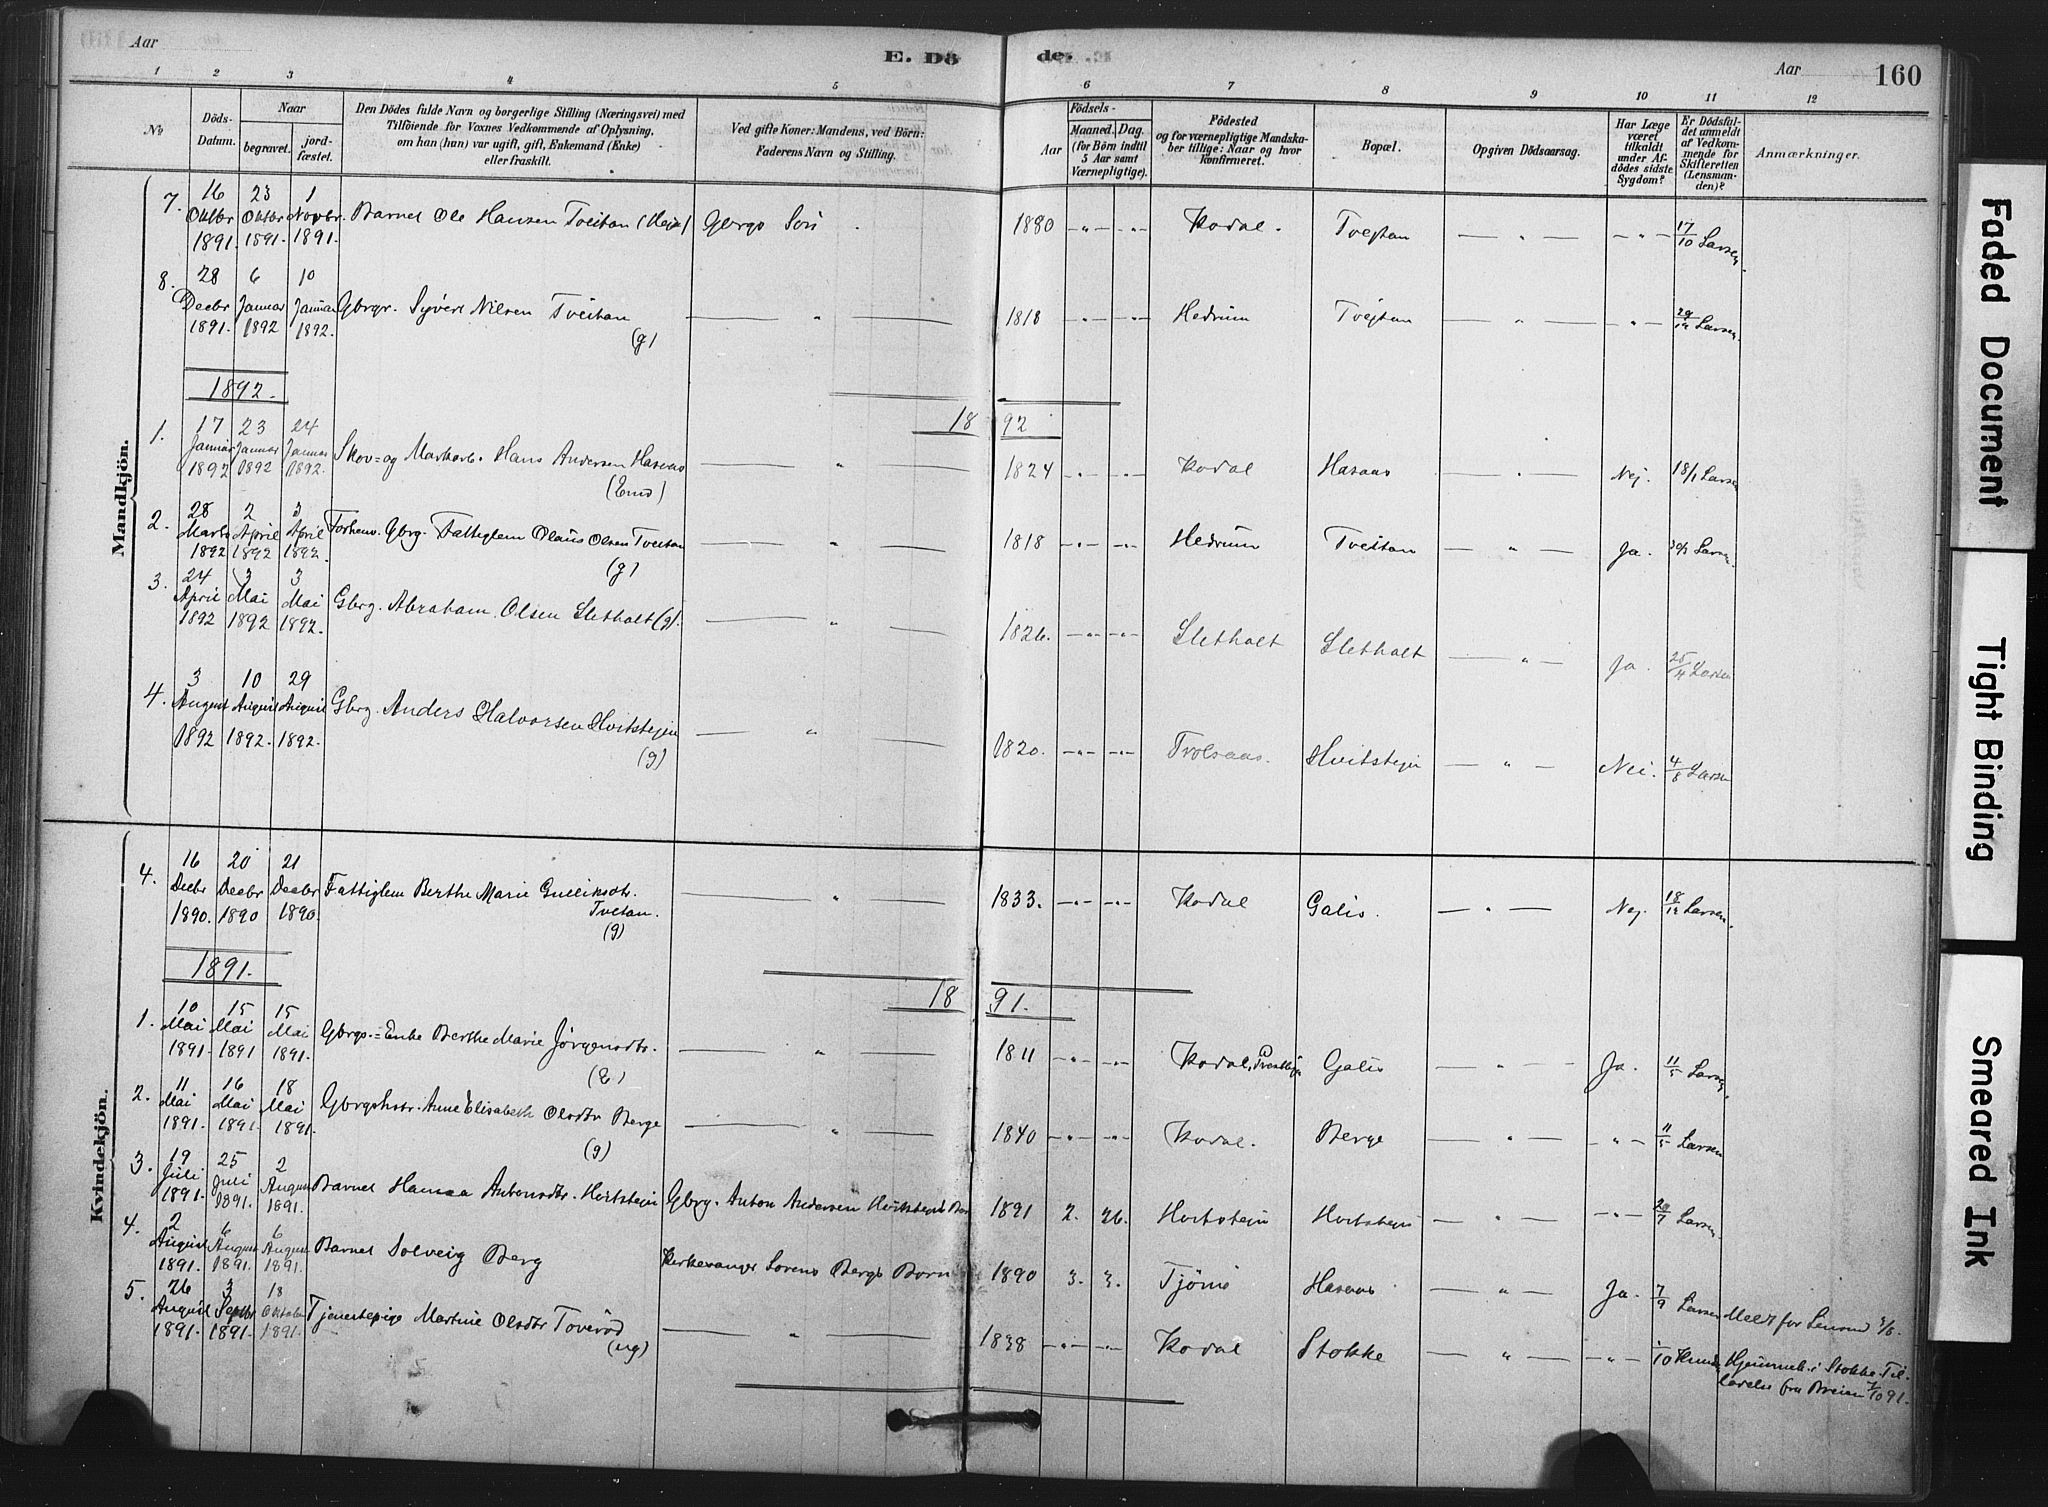 Aar
E. Dö
de.
Aar
160
1 2 3 4 5 6 7 8 9 10 11 12
No
Döds-Datum.
Naar
begravet.
jord-fæstet.
Den Dödes fulde Navn og borgerlige Stilling (Næringsvei) med
Tilföiende for Voxnes Vedkommende af Oplysning,
om han (han) var ugift, gift, Enkemand (Enke)
eller fraskilt.
Ved gifte Koner: Mandens, ved Börn:
Faderens Navn og Stilling.
Födsels-
Aar
Maaned. Dag.
(for Börn indtil
5 Aar samt
Værnepligtige).
Födested
og for værnepligtige Mandska-
ber tillige: Naar og hvor
Konfirmeret.
Bopæl.
Opgiven Dödsaarsag.
Har Læge
været
tilkaldt
under Af-
dödes sidste
Sygdom?
Er Dödsfal-
det anmeldt
af Vedkom-
mende for
Skifteretten
(Lensman-
den)?
Anmærkninger.
Mandkjön.
7. 16 Oktbr 1891. 23 Oktbr 1891. 1 Novbr. 1891. Barnet Ole Hansen Tveitan Gbrgs Sön 1880 Kodal. Tvejtan 17/10 Larsen.
8. 28 Decbr 1891. 6 Januar 1892 10 Januar 1892. Gbrgr. Syvert Nilsen Tveitan (g) 1818 Hedrum Tvejtan 29/12 Larsen.
1892.
18 92
1. 17 Januar 1892 23 Januar 1892 24 Januar 1892. Skov= og Markarb. Hans Andersen Hasaas (Emd) 1824 Kodal Hasaas Nej. 18/1 Larsen
2. 28 Marts 1892 2 April 1892 3 April 1892. Forhenv. Gbrg. Fattiglem Olaus Olsen Tveitan (g) 1818 Hedrum Tveitan Ja. 30/3 Larsen
3. 24 April 1892 3 Mai 1892 3 Mai 1892. Gbrg. Abraham Olsen Sletholt (g). 1826. Sletholt Sletholt Ja. 25/4 Larsen
4. 3 August 1892 10 August 1892. 29 August 1892. Gbrg. Anders Halvorsen Hvitstejn (g) 1820. Trolsaas. Hvitstejn Nei. 4/8 Larsen
Kvindekjön.
4. 16 Decbr 1890. 20 Decbr 1890 21 Decbr 1890. Fattiglem Berthe Marie Gulliksdtr. Tveitan. (g) 1833. Kodal Galis. Nej. 18/12 Larsen.
1891.
18 91.
1. 10 Mai 1891. 15 Mai 1891 15 Mai 1891. Gbrgs.= Enke Berthe Marie Jørgensdtr. (E) 1811 Kodal, Galis Ja. 11/5 Larsen,
2. 11 Mai 1891. 16 Mai 1891. 18 Mai 1891. Gbrgshstr. Anne Elisabeth Olsdtr Berge (g) 1840 Kodal. Berge 11/5 Larsen
3. 19 Juli 1891. 25 Juli 1891. 2 August 1891. Barnet Hanna Antonsdtr. Hvitstejn Gbrg. Anton Andersen Hvitstejns Barn 1891 2. 26. Hvitstejn Hvitstejn 20/7 Larsen.
4. 2 August 1891. 6 August 1891. 6 August 1891. Barnet Solveig Berg Kirkesanger Sorens Bergs Barn 1890 3. 3. Tjömö Hasaas Ja. 7/9 Larsen Meldt for Lensmd
5. 26 August 1891. 3 Septbr 1891. 18 Oktober 1891. Tjenestepige Martine Olsdtr Toverød (ug) 1838 Kodal Stokke /10 Hjemmeh. i Stokke. Til-
ladelse fra Preien 7/10 91.
Faded Document
Tight Binding
Smeared Ink